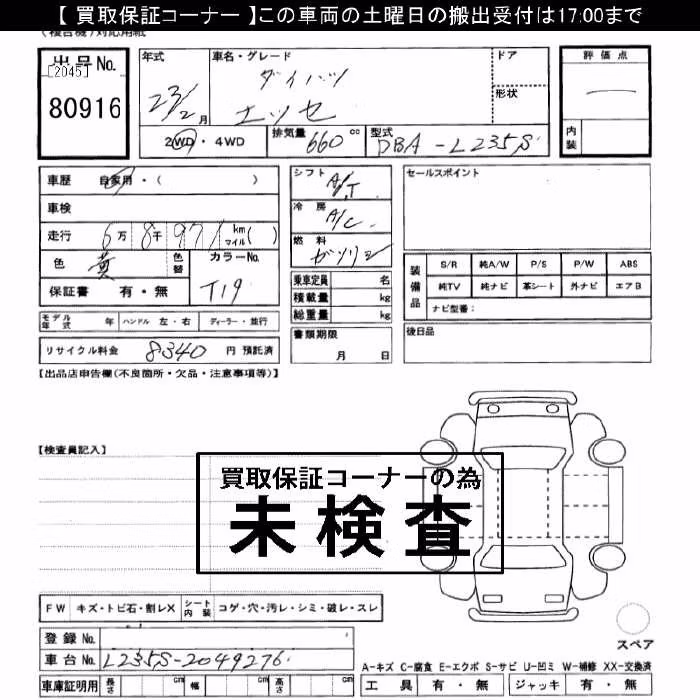 【 買取保証コーナー 】この車両の土曜日の搬出受付は17:00まで
(複合機)対応用紙
出品No.
[2045]
80916
年式
23/2月
車名・グレード
ダイハツ
エッセ
ドア
形状
評価点
内装
2WD・4WD
排気量 660 cc
型式 DBA-L235S
車歴 自家用・( )
車検
走行 6万8千971 km マイル( )
色 黄
色替
カラーNo.
T19
保証書 有・無
シフト A/T
冷房 A/C
燃料 ガソリン
乗車定員 名
積載量 kg
総重量 kg
セールスポイント
装備品
S/R 純A/W P/S P/W ABS
純TV 純ナビ 革シート 外ナビ エアB
ナビ型番:
モデル年式 年 ハンドル 左・右 ディーラー・並行
書類期限
月 日
後日品
リサイクル料金 8340 円 預託済
【出品店申告欄(不良箇所・欠品・注意事項等)】
【検査員記入】
買取保証コーナーの為
未検査
FW キズ・トビ石・割レX シート内装 コゲ・穴・汚レ・シミ・破レ・スレ
登録No.
車台No. L235S-2049276
車庫証明用 長さ cm 幅 cm 高さ cm
スペア
A-キズ C-腐食 E-エクボ S-サビ U-凹ミ W-補修 XX-交換済
工具 有・無 ジャッキ 有・無